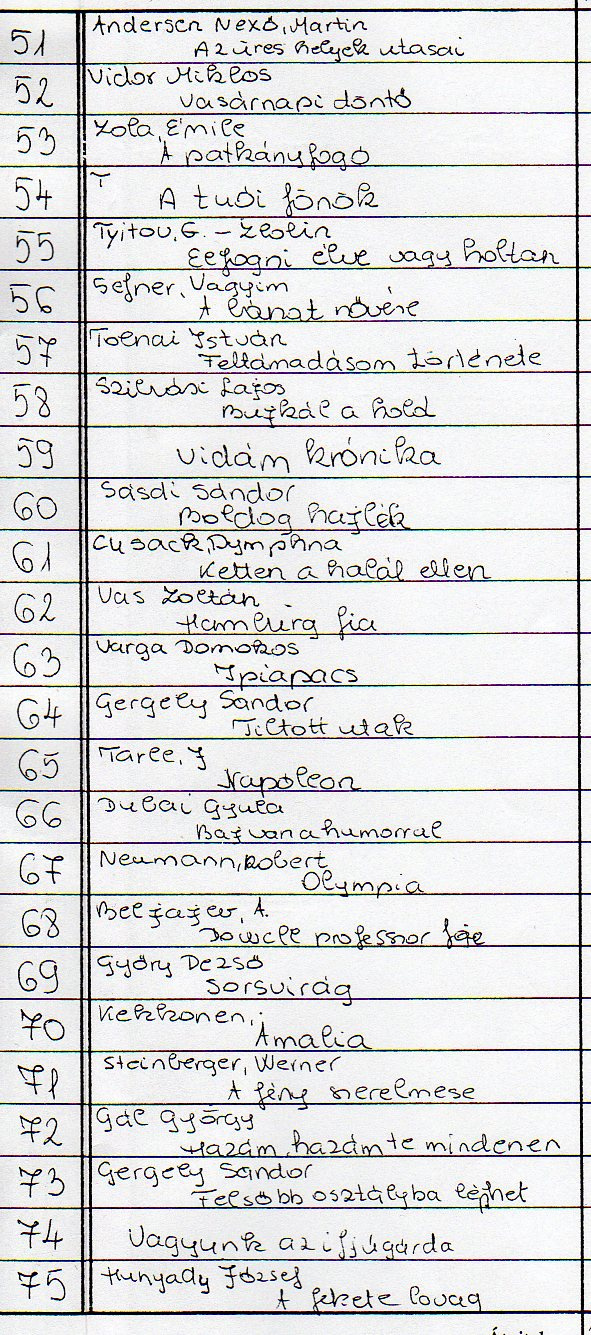 51 Andersen Nexö, Martin
Az üres helyek utasai
52 Vidor Miklós
Vasárnapi döntő
53 Zola, Émile
A patkányfogó
54 T
A tudi főnök
55 Tyitov, G. - Zlobin
Elfogni élve vagy holtan
56 Sefner, Vagyim
A bánat nővére
57 Tolnai István
Feltámadásom története
58 Szilvási Lajos
Bujkál a hold
59 Vidám krónika
60 Sásdi Sándor
Boldog hajlék
61 Cusack, Dymphna
Ketten a halál ellen
62 Vas Zoltán
Hamburg fia
63 Varga Domokos
Ipiapacs
64 Gergely Sándor
Tiltott utak
65 Tarle, J
Napóleon
66 Dubai Gyula
Baj van a humorral
67 Neumann, Robert
Olympia
68 Beljajev, A.
Dowell professor feje
69 Győry Dezső
Sorsvirág
70 Kekkonen,
Amalia
71 Steinberger, Werner
A fény szerelmese
72 Gál György
Hazám, hazám te mindenen
73 Gergely Sándor
Felsőbb osztályba léphet
74 Vagyunk az ifjúgárda
75 Hunyady József
A fekete lovag